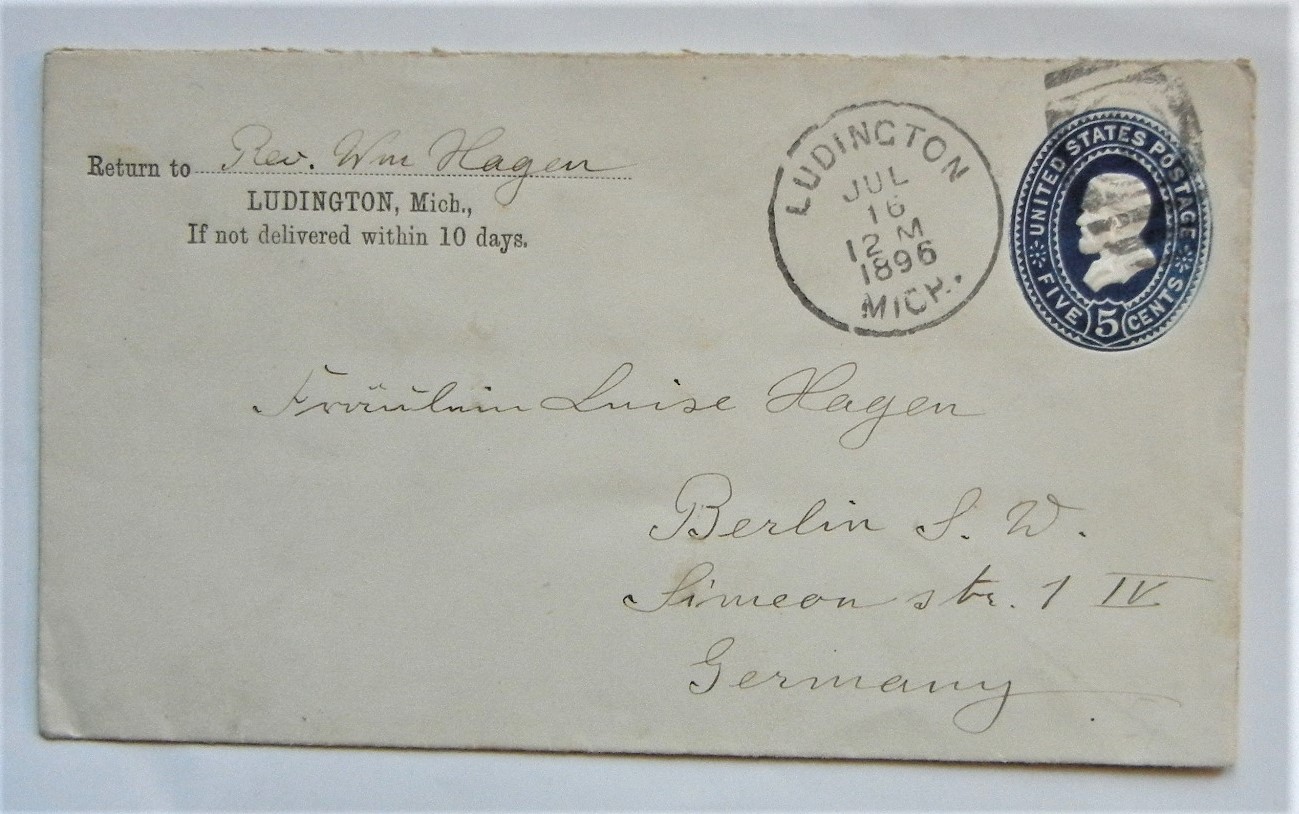 Return to Rev. Wm Hagen
LUDINGTON, Mich.,
If not delivered within 10 days.
LUDINGTON
JUL
16
12 M
1896
MICH.
UNITED STATES POSTAGE
FIVE 5 CENTS
Fräulein Luise Hagen
Berlin S. W.
Simeon str. 1 IV
Germany